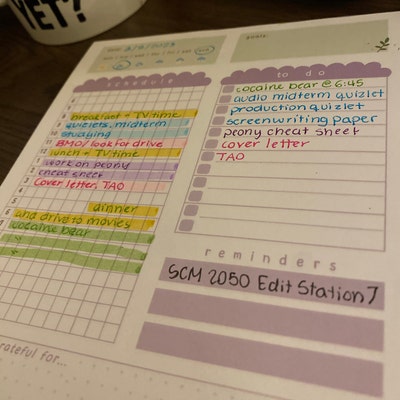 YET?
goals:
schedule
breakfast + TV time
quizlets, midterm
studying
BMO/look for drive
lunch + TV time
work on peony
cheat sheet
cover letter, TAO
dinner
and drive to movies
cocaine bear
to do
cocaine bear @ 6:45
audio midterm quizlet
production quizlet
screenwriting paper
peony cheat sheet
cover letter
TAO
reminders
SCM 2050 Edit Station 7
rateful for...